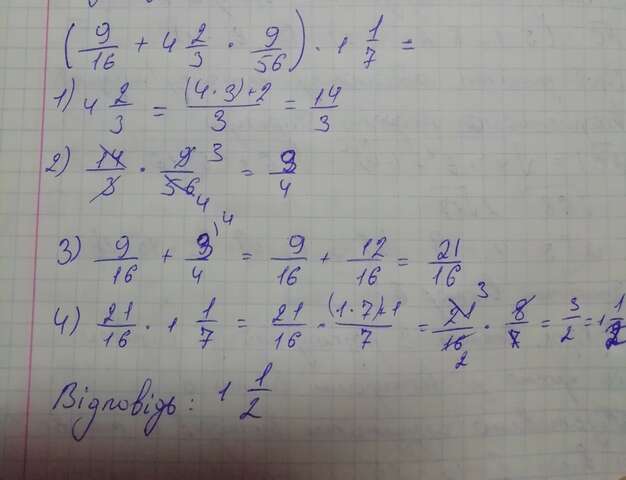 (9/16 + 4 2/3 · 9/56) · 1 1/7 =
1) 4 2/3 = (4·3)+2/3 = 14/3
2) 14/3 · 9/56 3 4 = 3/4
3) 9/16 + 3/4 \4 = 9/16 + 12/16 = 21/16
4) 21/16 · 1 1/7 = 21/16 · (1·7)+1/7 = 21/16 3 2 · 8/7 = 3/2 = 1 1/2
Відповідь: 1 1/2